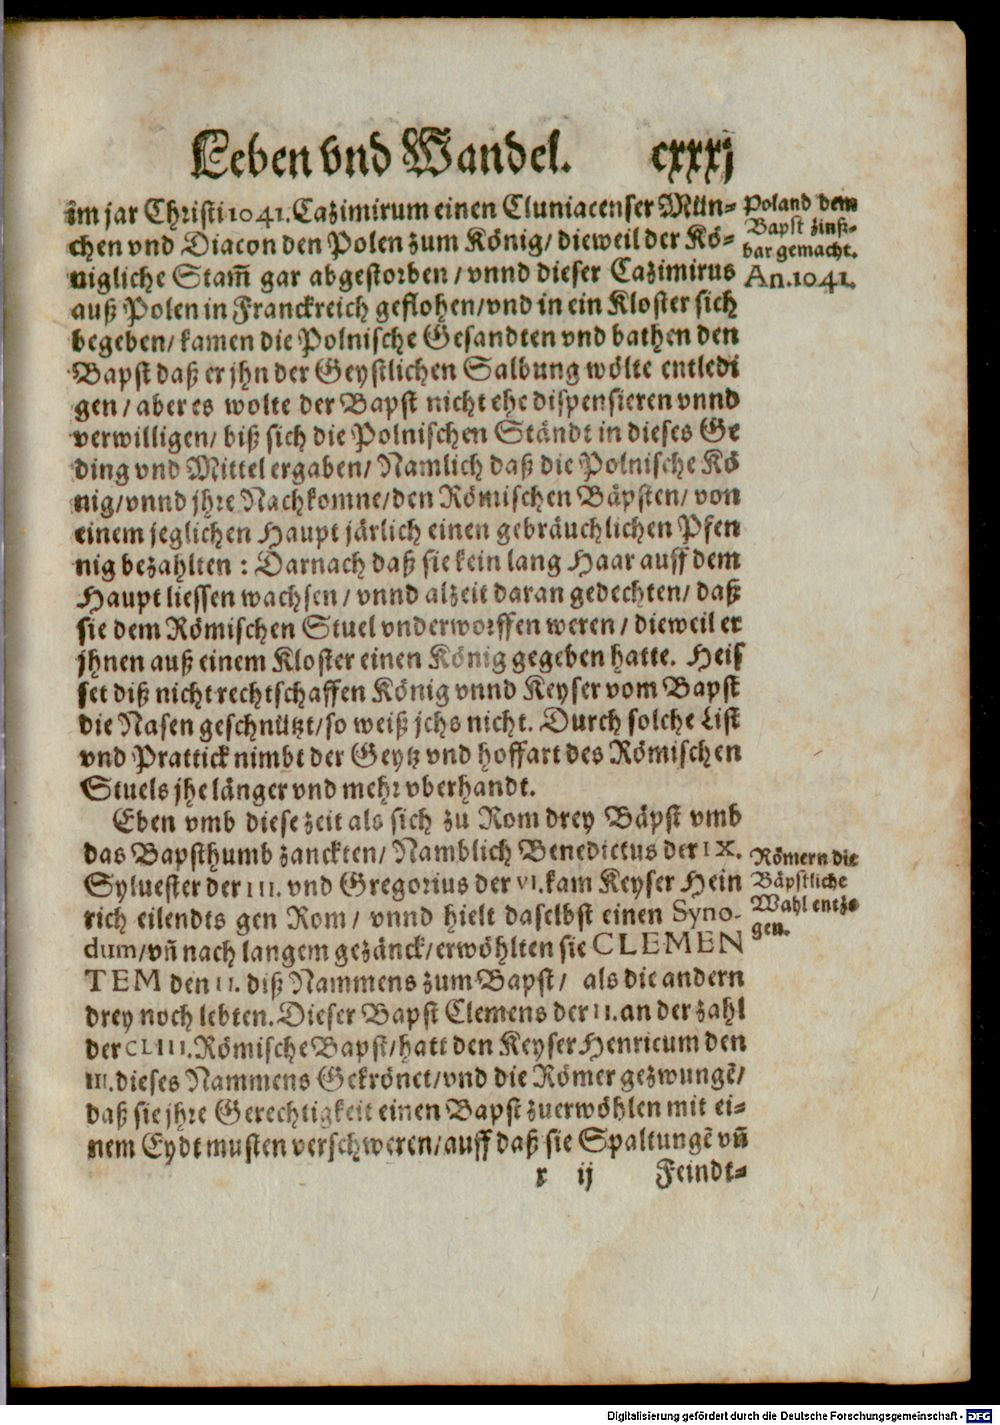 Leben vnd Wandel. cxxxj
im jar Christi 1041. Cazimirum einen Cluniacenser Mün-
chen vnd Diacon den Polen zum König/ dieweil der Kö-
nigliche Stam̃ gar abgestorben/ vnnd dieser Cazimirus
auß Polen in Franckreich geflohen/ vnd in ein Kloster sich
begeben/ kamen die Polnische Gesandten vnd bathen den
Bapst daß er jhn der Geystlichen Salbung wölte entledi
gen/ aber es wolte der Bapst nicht ehe dispensieren vnnd
verwilligen/ biß sich die Polnischen Ständt in dieses Ge
ding vnd Mittel ergaben/ Namlich daß die Polnische Kö
nig/ vnnd jhre Nachkomne/ den Römischen Bäpsten/ von
einem jeglichen Haupt järlich einen gebräuchlichen Pfen
nig bezahlten: Darnach daß sie kein lang Haar auff dem
Haupt liessen wachsen/ vnnd alzeit daran gedechten/ daß
sie dem Römischen Stuel vnderworffen weren/ dieweil er
jhnen auß einem Kloster einen König gegeben hatte. Heis
set diß nicht rechtschaffen König vnnd Keyser vom Bapst
die Nasen geschnützt/ so weiß jchs nicht. Durch solche List
vnd Prattick nimbt der Geytz vnd hoffart des Römischen
Stuels jhe länger vnd mehr vberhandt.
Poland dem
Bapst zinß-
bar gemacht.
An. 1041.
Eben vmb diese zeit als sich zu Rom drey Bäpst vmb
das Bapsthumb zanckten/ Namblich Benedictus der IX.
Syluester der III. vnd Gregorius der VI. kam Keyser Hein
rich eilendts gen Rom/ vnnd hielt daselbst einen Syno-
dum/ vñ nach langem gezänck/ erwöhlten sie CLEMEN
TEM den II. diß Nammens zum Bapst/ als die andern
drey noch lebten. Dieser Bapst Clemens der II. an der zahl
der CLIII. Römische Bapst/ hatt den Keyser Henricum den
III. dieses Nammens Gekrönet/ vnd die Römer gezwungẽ/
daß sie jhre Gerechtigkeit einen Bapst zuerwöhlen mit ei-
nem Eydt musten verschweren/ auff daß sie Spaltungẽ vñ
Römern die
Bäpstliche
Wahl entzo
gen.
x ij Feindt-
Digitalisierung gefördert durch die Deutsche Forschungsgemeinschaft - DFG